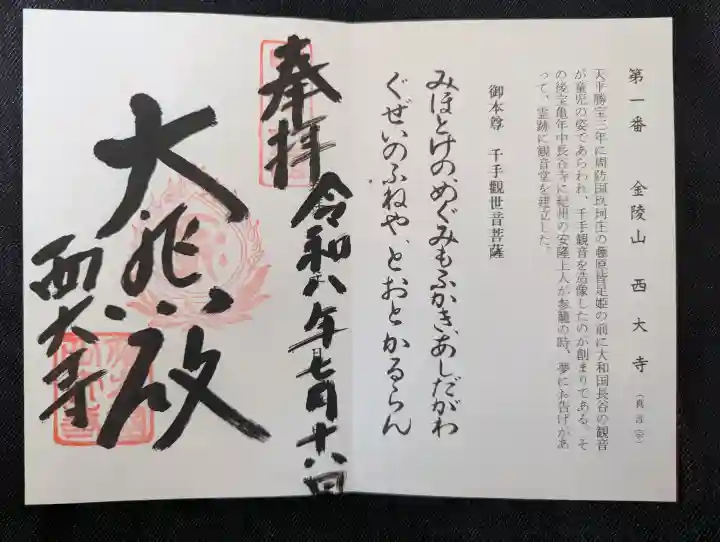 第一番 金陵山 西大寺（真言宗）
天平勝宝三年に周防国玖珂庄の藤原皆足姫の前に大和国長谷の観音
が童児の姿であらわれ、千手観音を造像したのが創まりである。そ
の後宝亀年中長谷寺に紀州の安隆上人が参籠の時、夢にお告げがあ
って、霊跡に観音堂を建立した。
御本尊 千手觀世音菩薩
みほとけの、めぐみもふかき、あしだがわ
ぐぜいのふねや、とおとかるらん
奉拝 令和八年七月十八日
大悲殿
西大寺